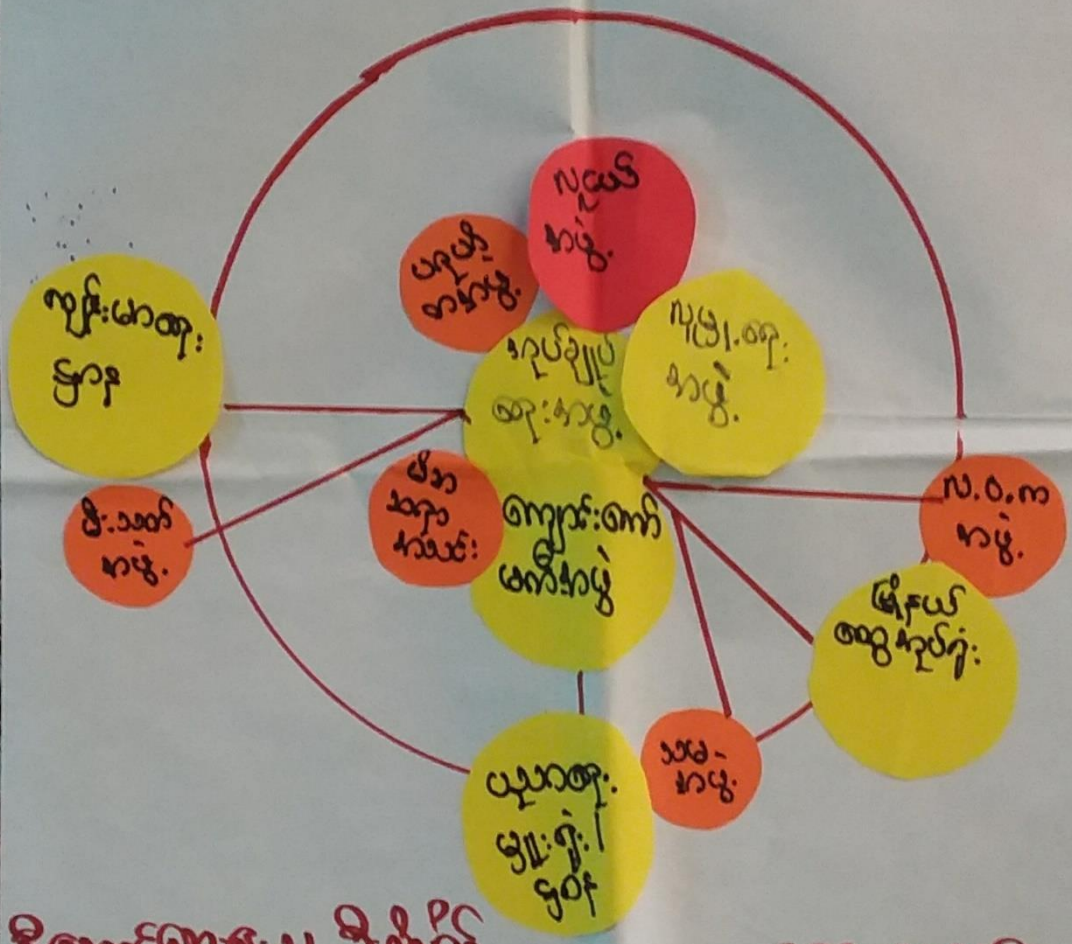 လူငယ်
အဖွဲ့
ပရဟိ
တအဖွဲ့
ကျန်းမာရေး
ဌာန
အုပ်ချုပ်
ရေးအဖွဲ့
လူမှု.ရေး
အဖွဲ့
မီးသတ်
အဖွဲ့
မိဘ
ဆရာ
အသင်း
ကျောင်းကော်
မတီအဖွဲ့
လ.ဝ.က
အဖွဲ့
မြို့နယ်
ထွေအုပ်ရုံး
သမ-
အဖွဲ့
ပညာရေး
မှူးရုံး/
ဌာန